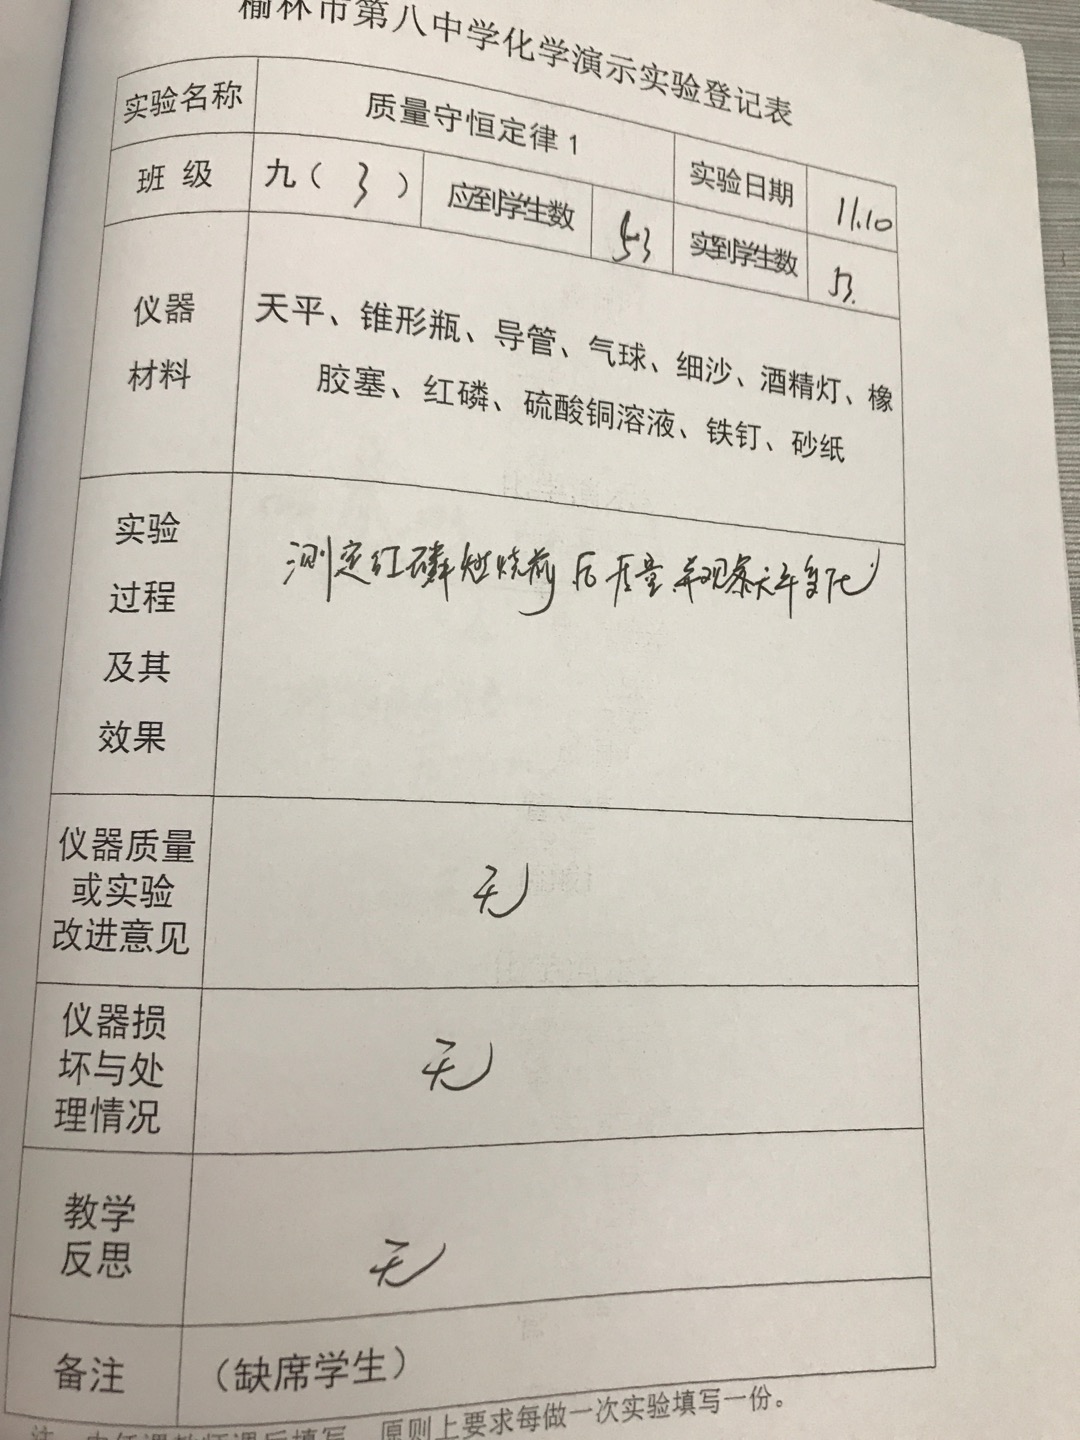 榆林市第八中学化学演示实验登记表
实验名称 质量守恒定律1 实验日期 11.10
班 级 九（3） 应到学生数 53 实到学生数 53.
仪器
材料
天平、锥形瓶、导管、气球、细沙、酒精灯、橡
胶塞、红磷、硫酸铜溶液、铁钉、砂纸
实验
过程
及其
效果
测定红磷燃烧前后质量并观察天平变化
仪器质量
或实验
改进意见
无
仪器损
坏与处
理情况
无
教学
反思
无
备注 （缺席学生）
注 由任课教师课后填写 原则上要求每做一次实验填写一份。